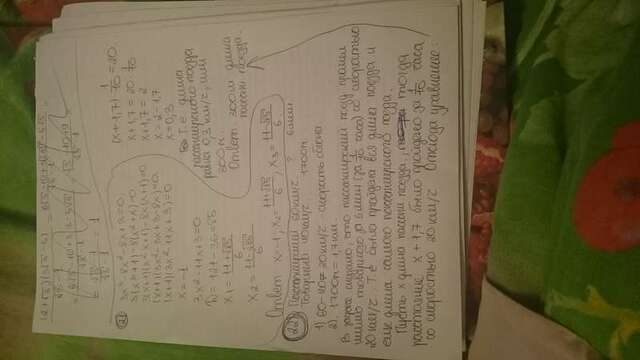 21
3x³-8x²-8x+3=0
3(x³+1)-8(x²+x)=0
3(x+1)(x²-x+1)-8x(x+1)=0
(x+1)(3x²-3x+3-8x)=0
(x+1)(3x²-11x+3)=0
x=-1
3x²-11x+3=0
D=121-36=85
x₁=(11+√85)/6
x₂=(11-√85)/6
Ответ x₁=-1, x₂=(11+√85)/6, x₃=(11-√85)/6
(x+1,7) : 1/10=20
x+1,7=20·1/10
x+1,7=2
x=2-1,7
x=0,3
Т.е длина
пассажирского поезда
равна 0,3 км/ч, или
300м.
Ответ: 300м длина
пассаж поезда.
22 Пассажирский 60км/ч ? 6мин.
Товарный 40км/ч 1700м
1) 60-40=20км/ч - скорость обгона
2) 1700м=1,7км.
В задаче сказано, что пассажирский поезд прошел
мимо товарного за 6мин (за 1/10 часа) со скоростью
20км/ч. Т.е было пройдена вся длина поезда и
еще длина самого пассажирского поезда.
Пусть x длина пассаж поезда, тогда
расстояние x+1,7 было пройдено за 1/10 часа
со скоростью 20км/ч Отсюда уравнение: